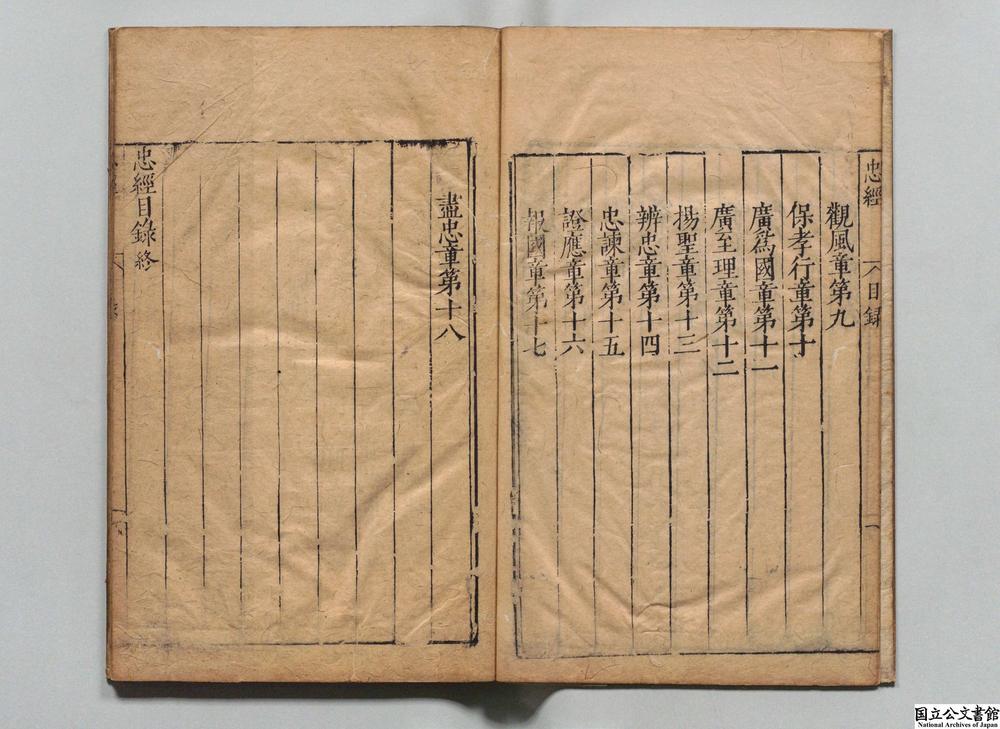 忠經 目録
觀風章第九
保孝行章第十
廣爲國章第十一
廣至理章第十二
揚聖章第十三
辨忠章第十四
忠諫章第十五
證應章第十六
報國章第十七
盡忠章第十八
忠經目錄終
国立公文書館
National Archives of Japan